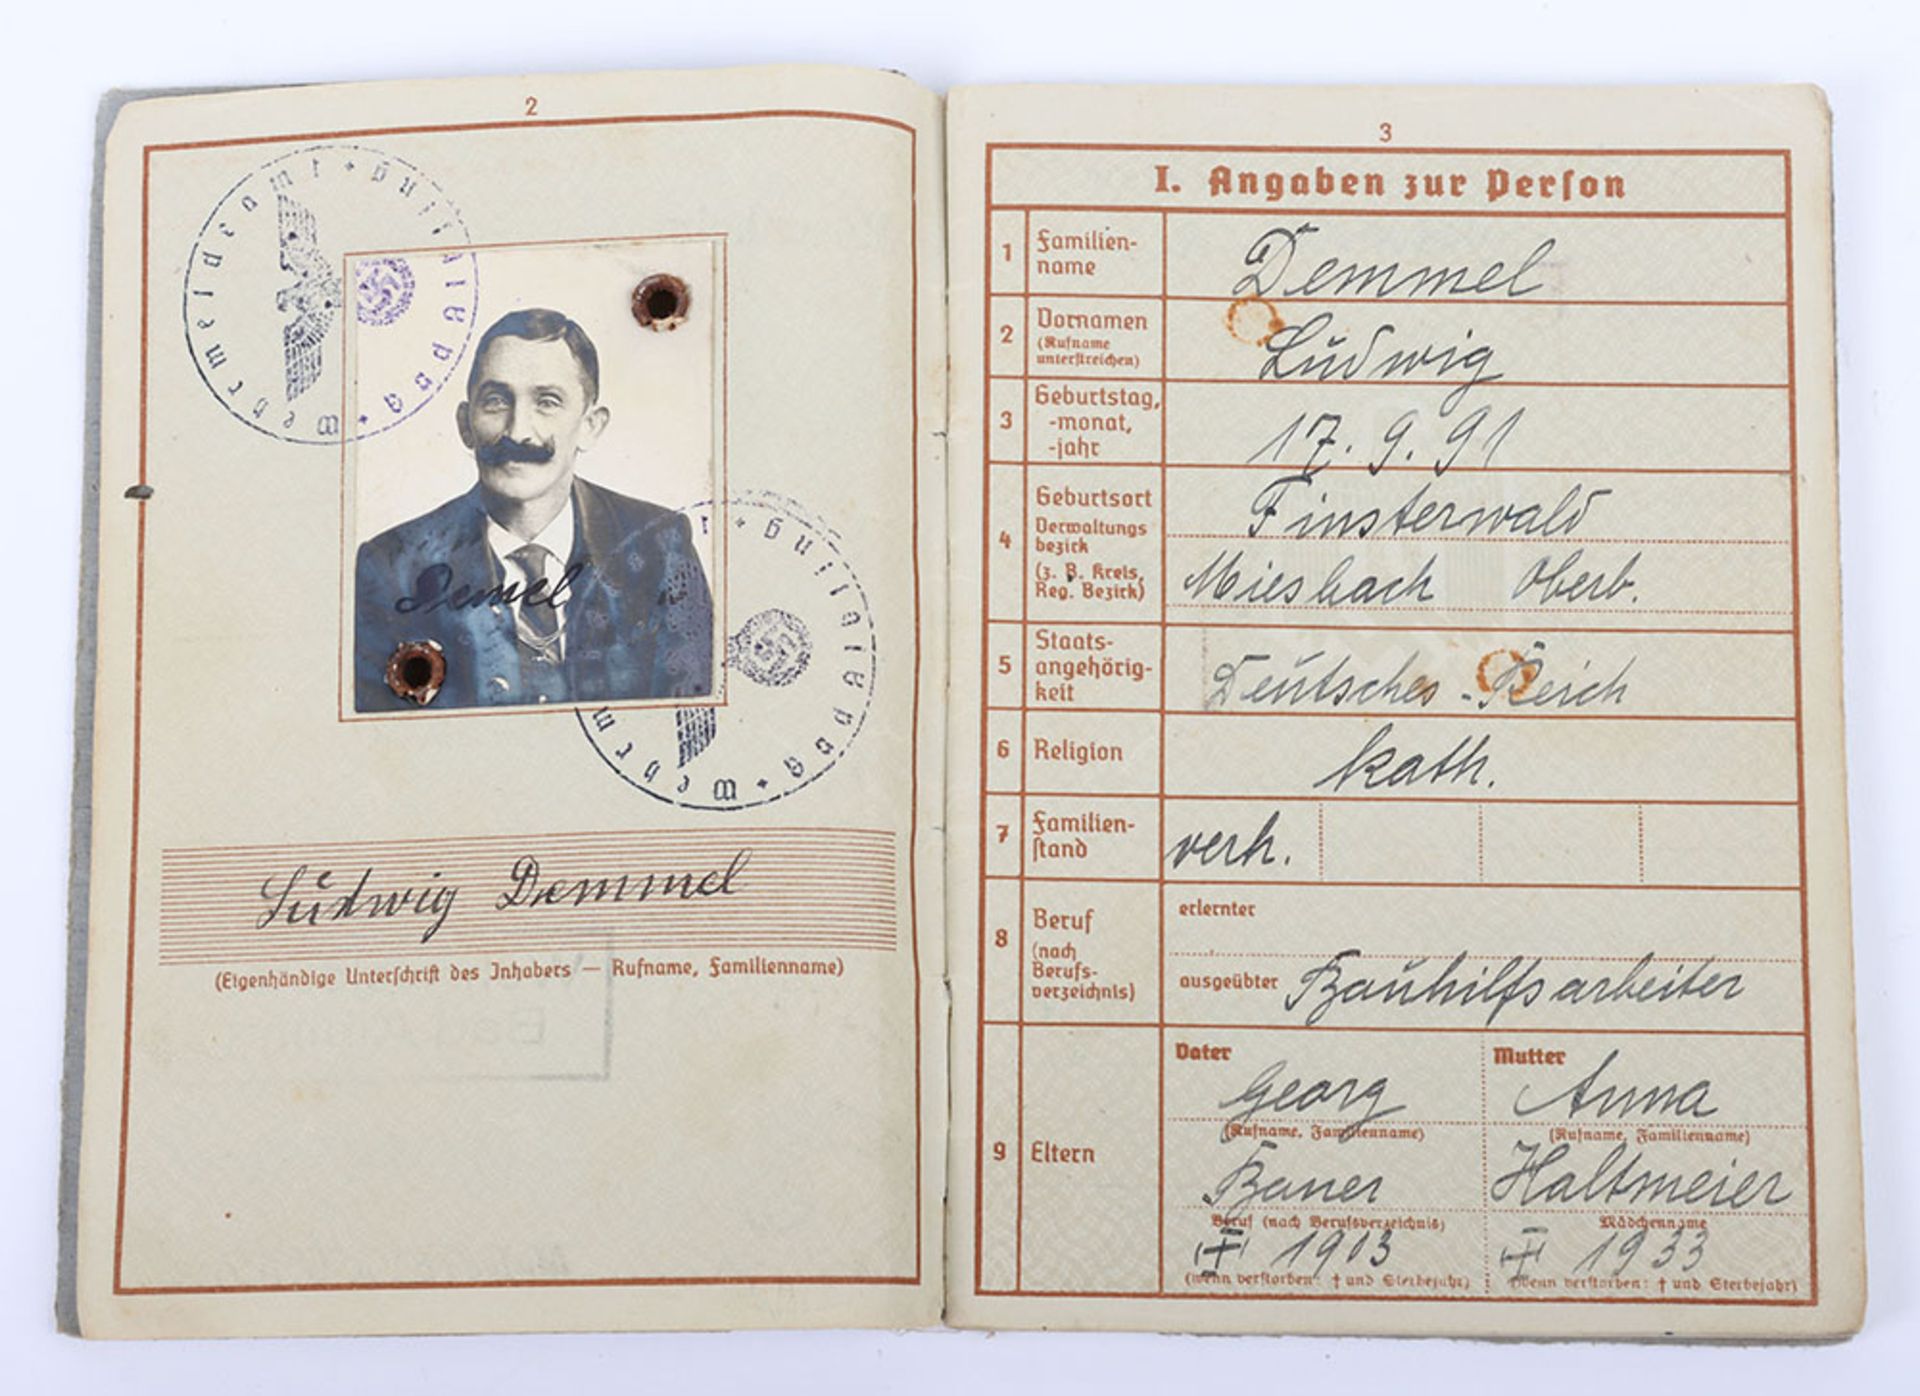 2
Wehrmeldeamt * Augsburg *
Demel
Wehrm
Ludwig Demmel
(Eigenhändige Unterschrift des Inhabers — Rufname, Familienname)
3
I. Angaben zur Person
1 Familien-
name
Demmel
2 Vornamen
(Rufname
unterstreichen)
Ludwig
3 Geburtstag,
-monat,
-jahr
17. 9. 91
4 Geburtsort
Verwaltungs
bezirk
(z. B. Kreis,
Reg. Bezirk)
Finsterwald
Miesbach Oberb.
5 Staats-
angehörig-
keit
Deutsches-Reich
6 Religion
kath.
7 Familien-
stand
verh.
8 Beruf
(nach
Berufs-
verzeichnis)
erlernter
ausgeübter Bauhilfsarbeiter
9 Eltern
Vater
Georg
(Rufname, Familienname)
Bauer
Beruf (nach Berufsverzeichnis)
(†) 1903
(wenn verstorben: † und Sterbejahr)
Mutter
Anna
(Rufname, Familienname)
Haltmeier
Mädchenname
(†) 1933
(wenn verstorben: † und Sterbejahr)